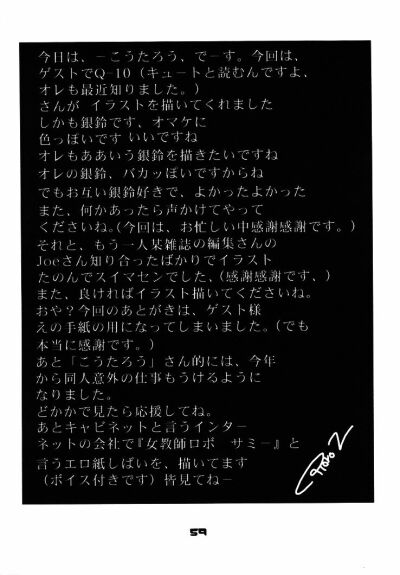 今日は、－こうたろう、でーす。今回は、
ゲストでQ-10（キュートと読むんですよ、
オレも最近知りました。）
さんが イラストを描いてくれました
しかも銀鈴です、オマケに
色っぽいです いいですね
オレもああいう銀鈴を描きたいですね
オレの銀鈴、バカッぽいですからね
でもお互い銀鈴好きで、よかったよかった
また、何かあったら声かけてやって
くださいね。（今回は、お忙しい中感謝感謝です。）
それと、もう一人某雑誌の編集さんの
Joeさん知り合ったばかりでイラスト
たのんでスイマセンでした、（感謝感謝です、）
また、良ければイラスト描いてくださいね。
おや？今回のあとがきは、ゲスト様
えの手紙の用になってしまいました。（でも
本当に感謝です。）
あと「こうたろう」さん的には、今年
から同人意外の仕事もうけるように
なりました。
どかかで見たら応援してね。
あとキャビネットと言うインター
ネットの会社で『女教師ロボ　サミー』と
言うエロ紙しばいを、描いてます
（ボイス付きです）皆見てねー
59